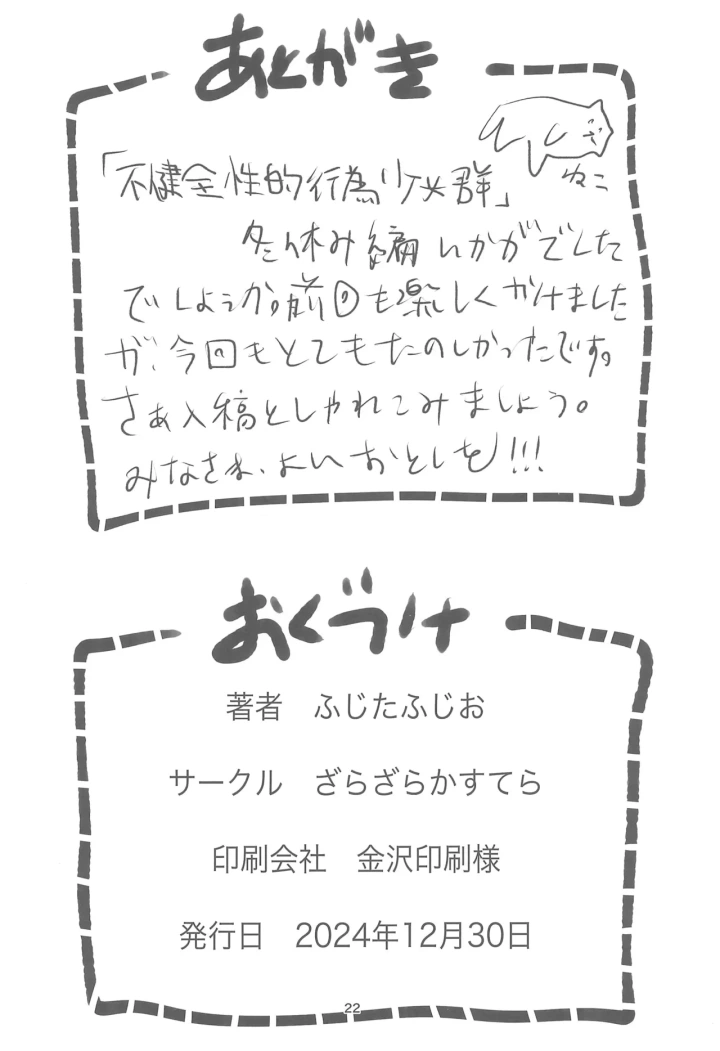 あとがき
ねこ
「不健全性的行為少女群」
冬休み編いかがでした
でしょうか。前回も楽しくかけました
が、今回もとてもたのしかったです。
さぁ入稿としゃれこみましょう。
みなさま、よいおとしを!!!
おくづけ
著者 ふじたふじお
サークル ざらざらかすてら
印刷会社 金沢印刷様
発行日 2024年12月30日
22